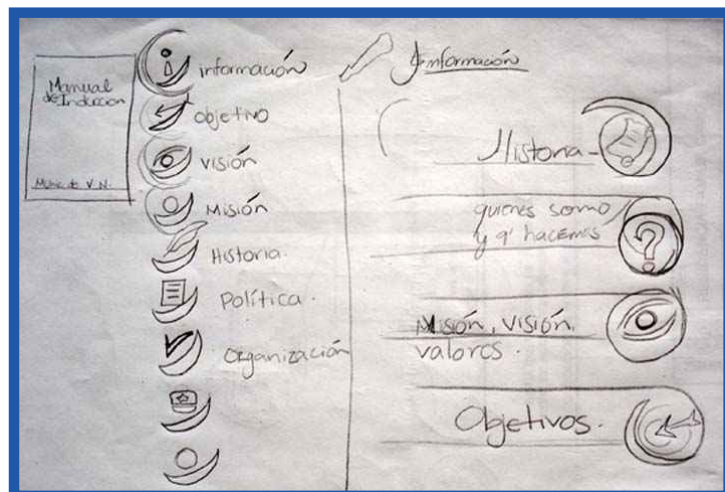 Manual
de Induccion
Munic de V.N.
información
objetivo
visión
Misión
Historia.
Política.
Organización
Información
Historia-
quienes somo
y q' hacemos
Misón, visión,
valores.
Objetivos.